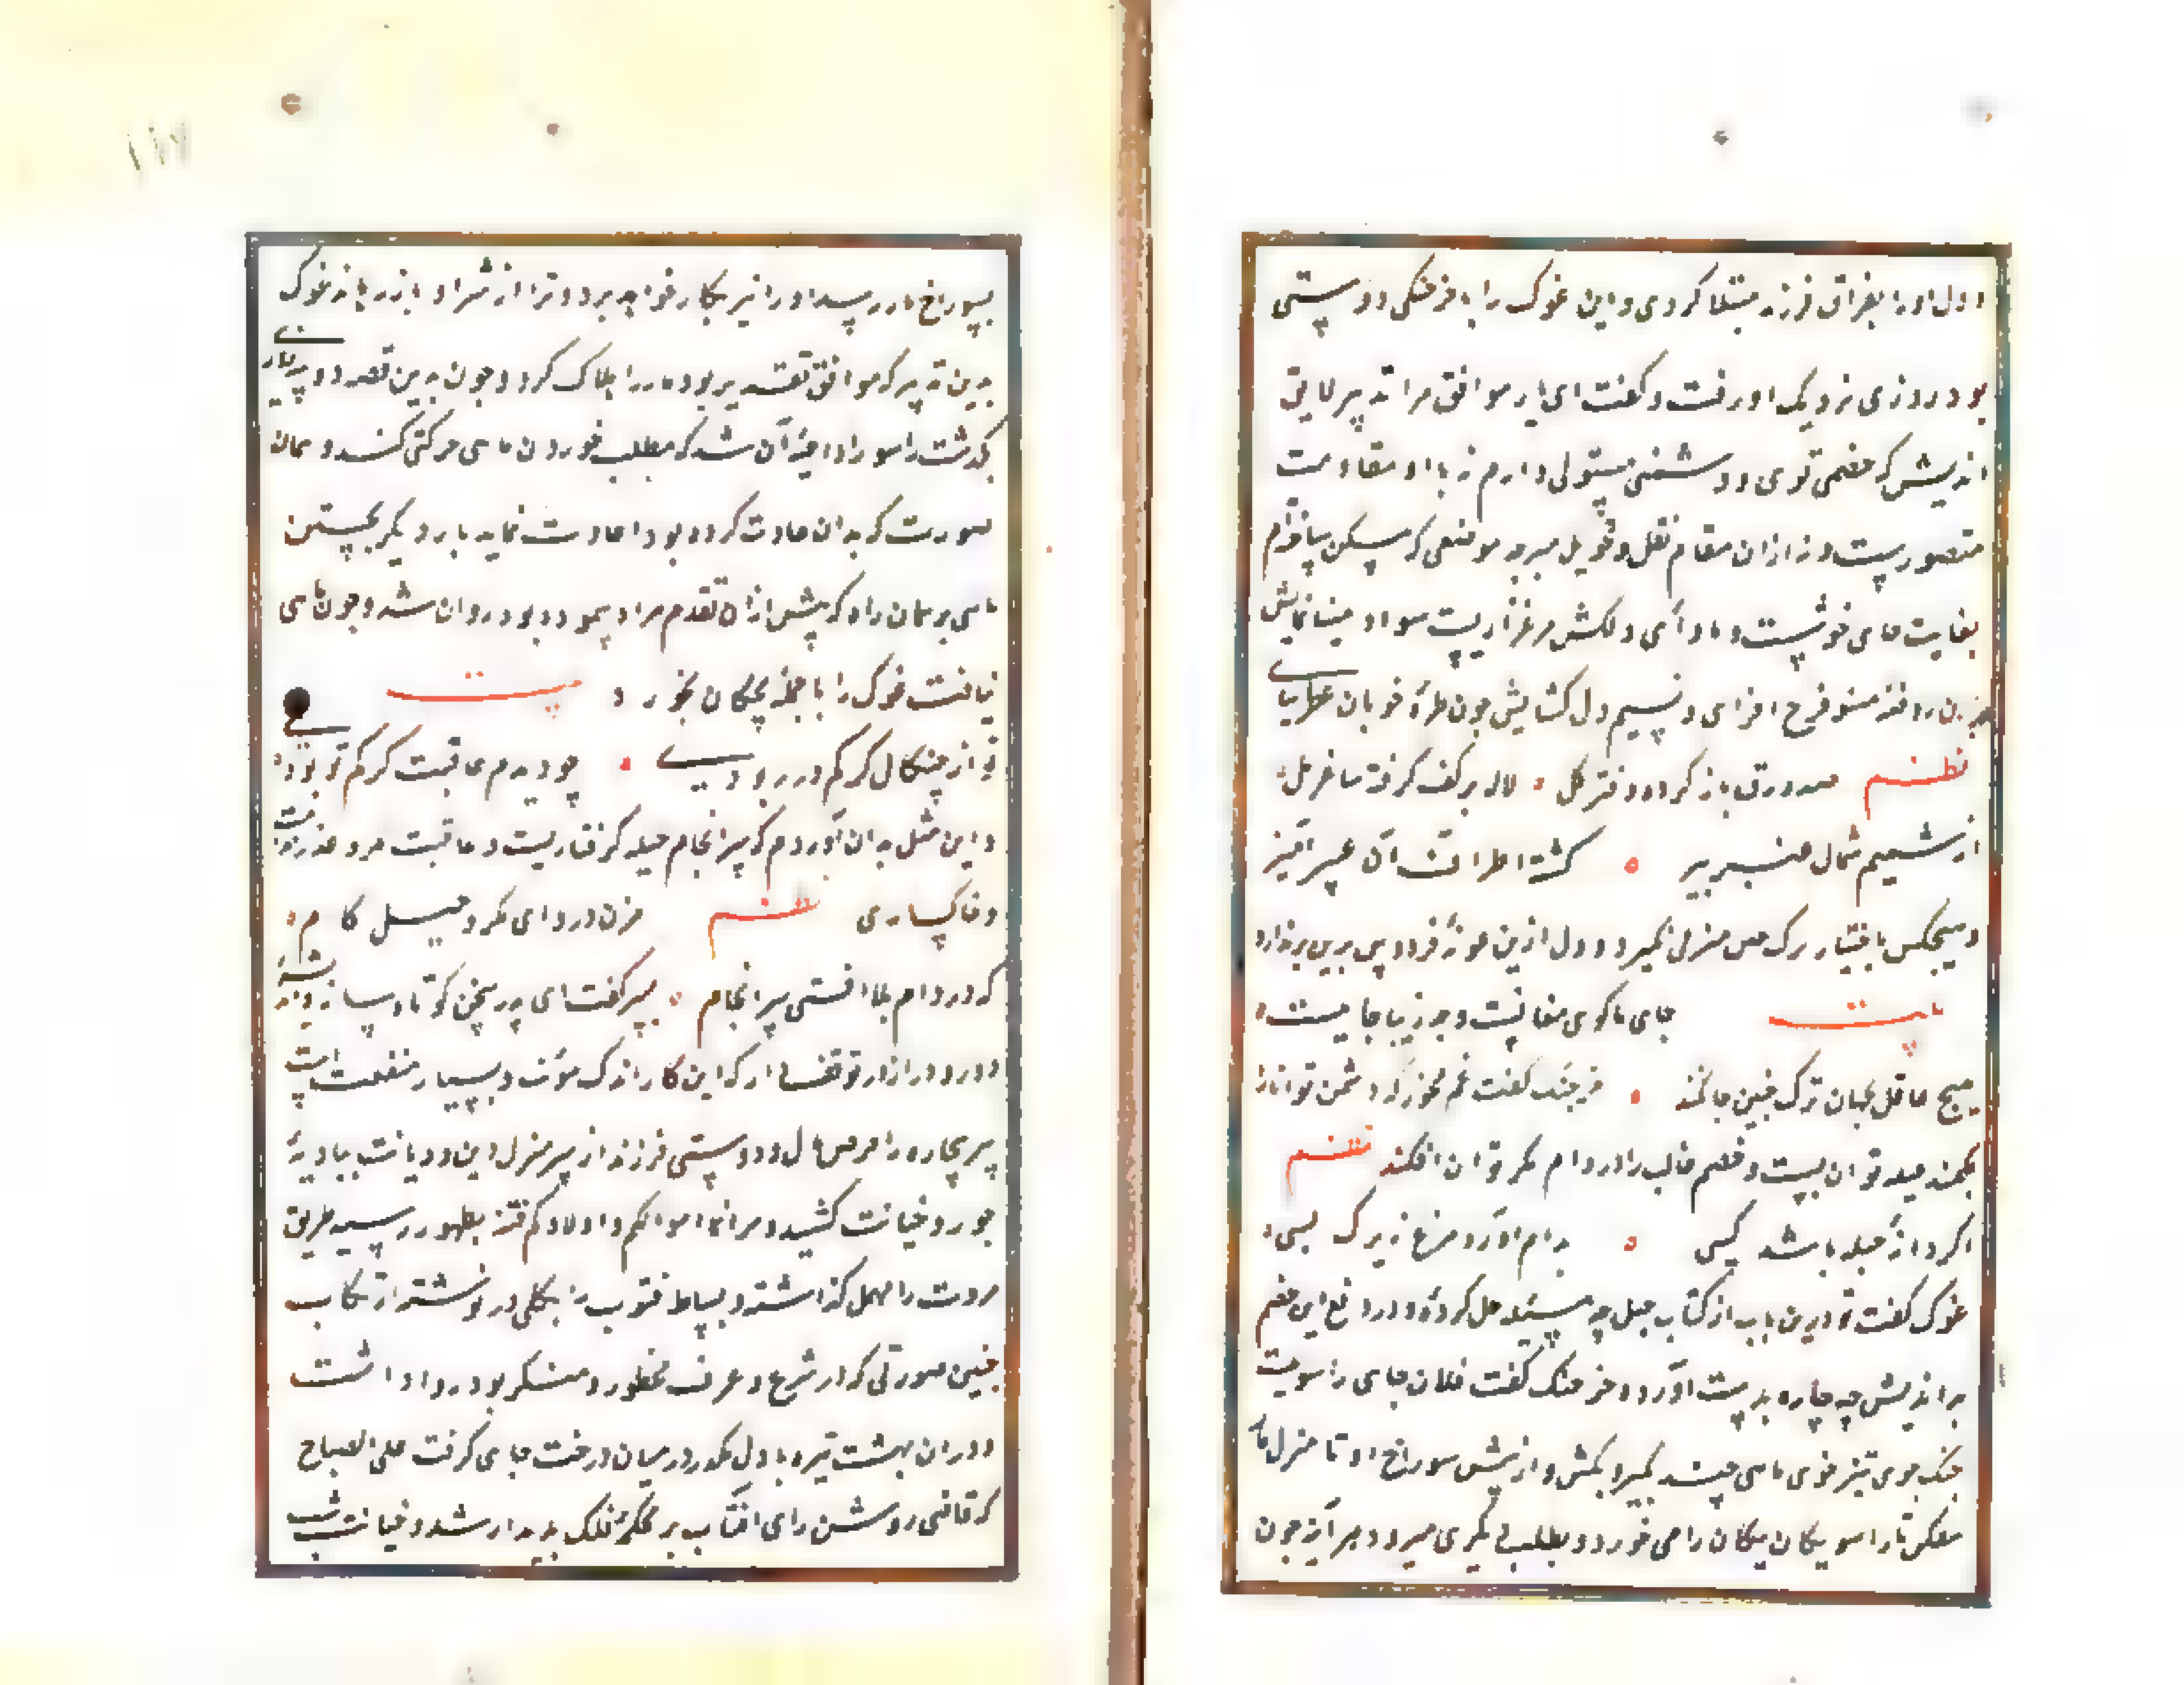 و دل او را بفراق فرزند مبتلا کردی و این غوک را با خرچنکی دوستی
بود روزی نزدیک او رفت و کفت ای یار موافق مرا تدبیر لایق
اندیش که خصمی قوی و دشمنی مستولی دارم نه با او مقاومت
متصورست و نه از ان مقام نقل و تحویل میسر چه موضعی که مسکن ساخته‌ام
بغایت جای خوشست و ماوائی دلکش مرغزاریست سواد مینا نمایش
چون روضه مینو فرح افزای و نسیم دل کشایش چون طرهٔ خوبان عطرسای
نظم صد ورق باز کرده دفتر کل لاله بر کف کرفته ساغر مل
از شمیم شمال عنبر بیز کشته اطراف آن عبیر آمیز
و هیچکس باختیار ترک چنین منزلی نکیرد و دل ازین نمونهٔ فردوس برین برندارد
بیت جای ما کوی مغانست و چه زیبا جاییست
هیچ عاقل بجهان ترک چنین جا نکند خرچنک کفت غم مخور که دشمن توانا را
بکمند حیله توان بست و خصم غالب را در دام مکر توان افکند نظم
اکر دانهٔ حیله باشد کسی بدام آورد مرغ زیرک بسی
غوک کفت تو درین باب از کتاب حیل چه مسئله حل کردهٔ و در دفع این خصم
بداندیش چه چاره بدست آورده خرچنک کفت فلان جای راسویست
جنک جوی تیز خوی ماهی چند بکیر و بکش و از پیش سوراخ او تا منزل مار
میفکن تا راسو یکان یکان را می خورد و بطلب دیکری میرود هر آینه چون
بسوراخ مار رسد او را نیز بکار خواهد برد و ترا از شر او باز رهاند غوک
بدین تدبیر که موافق تقدیر بود مار را هلاک کرد و چون بدین قصه دو سه روزی
بکذشت راسو را داعیهٔ آن شد که بطلب خوردن ماهی حرکتی کند و همان
صورت که بدان عادت کرده بود اعادت نماید بار دیکر بجستن
ماهی بر همان راه که پیش ازان بقدم مراد پیموده بود روان شد و چون ماهی
نیافت غوک را با جمله بچکان بخورد بیت
تو از چنکال کرکم در ربودی چو دیدم عاقبت کرکم تو بودی
و این مثل بدان آوردم که سرانجام حیله کرفتاریست و عاقبت مکر و غدر
و خاکساری نظم مزن در وادی مکر و حیل کام
که در دام بلا افتی سرانجام پسر کفت ای پدر سخن کوتاه ساز و اندیشهٔ
دور و دراز در توقف دار که این کار اندک مؤنت و بسیار منفعت است
پیر بیچاره را حرص مال و دوستی فرزند از سر منزل دین و دیانت ببادیهٔ
جور و خیانت کشید و سر انما اموالکم و اولادکم فتنه بظهور رسید طریق
مروت را مهمل کذاشته و بساط فتوت را بکلی در نوشته ارتکاب
چنین صورتی که در شرع و عرف محظور و منکر بود روا داشت
و در ان شب تیره با دل مکدر در میان درخت جای کرفت علی الصباح
که قاضی روشن رای آفتاب بر محکمهٔ فلک پدیدار شد و خیانت شب